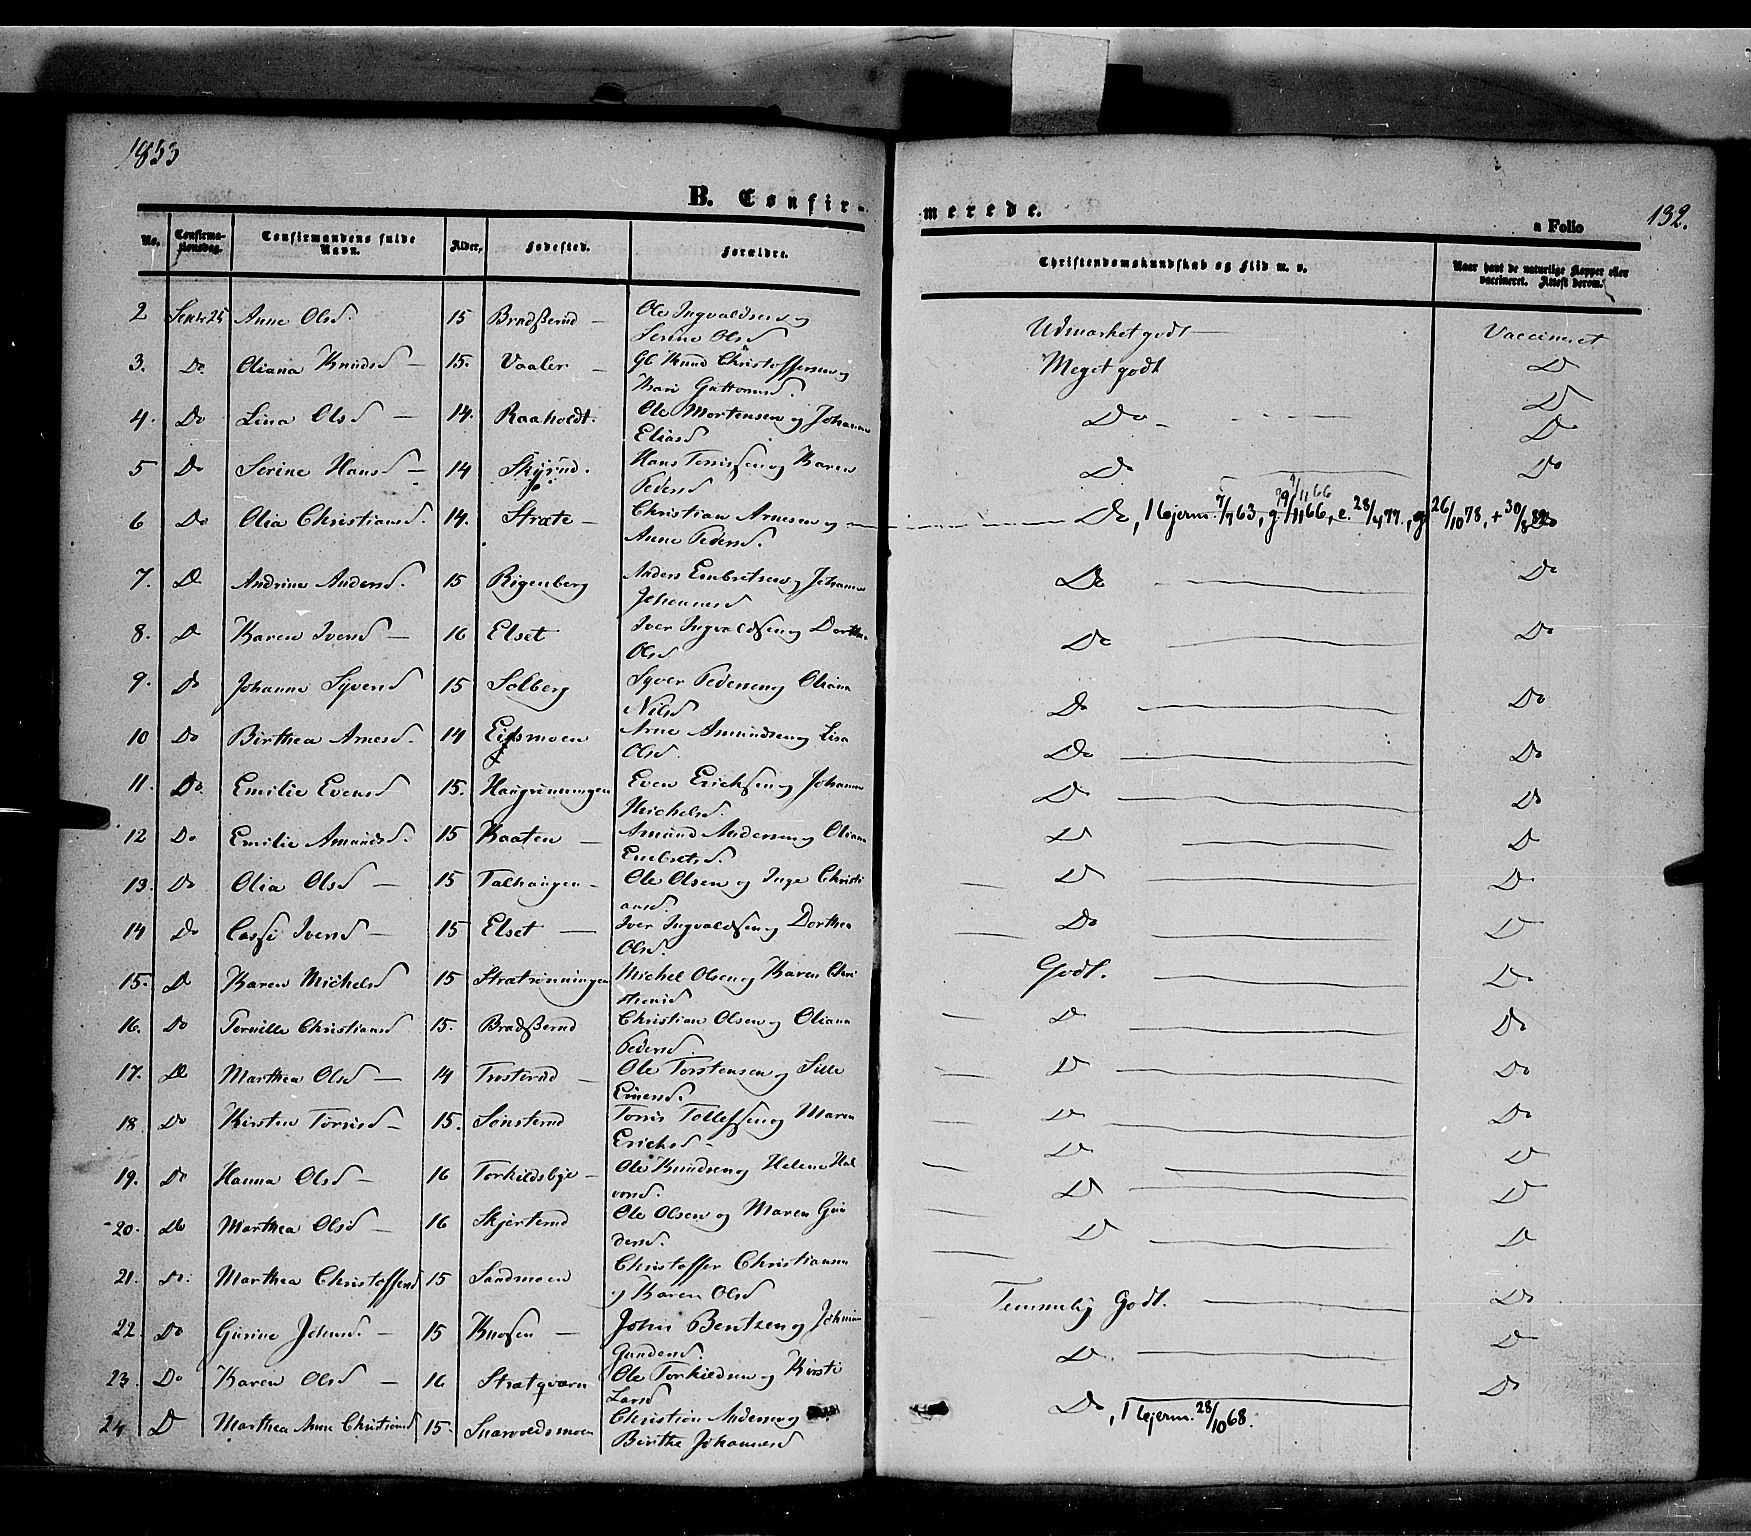 1853
B. Confirmerede.
a Folio 132.
No. Confirmationsdag. Confirmandens fulde Navn. Alder, Fødested. Forældre. Christendomskundskab og Flid m. v. Naar havt de naturlige Kopper eller vaccineret. Attest derom.
2 25 Anne Olsd. 15 Bradserud — Ole Ingvaldsen og
Serine Olsd Udmærket godt — Vaccineret
3. Do. Oliana Knudsd — 15. Vaaler — Knud Christoffersen og
Kari Guttormsd. Meget godt D
4. Do Lina Olsd — 14. Raaholdt. Ole Mortensen og Johanne
Eliasd Do — D
D
5 Do Serine Hansd — 14 Skjrud. Hans Tennissen og Karen
Pedersd D Do
9/11 66
6 Do Olia Christiansd. 14. Stræte — Christian Arnesen og
Anne Pedersd. Do, 1 Hjerm. 7/7 63, g. 9/11 66, e. 28/4 77, g 26/10 78, + 30/8 Do
7. D Andrine Andersd. 15 Rigenberg Anders Embretsen og Johanne
Johannesd Do Do
8. D Karen Iversd — 16 Elset Iver Ingvaldsen og Dorthea
Olsd Do Do
9. Do Johanne Syversd 15 Solberg Syver Pedersen og Oliana
Nilsd Do Do
10 Do Birthea Arnesd. 14 Eidsmoen Arne Amundsen og Lisa
Olsd. Do Do
11. Do. Emilie Evensd 15. Haugrønningen Even Ericksen og Johanne
Michelsd. D Do
12 Do Emilie Amundsd. 15 Kaaten — Amund Andersen og Oliana
Embretsd. D D
13. Do Olia Olsd — 15 Talhaugen — Ole Olsen og Inge Christi
ansd. D Do
14 Do Cassi Iversd — 15 Elset — Iver Ingvaldsen og Dorthea
Olsd. Do D
15. D Karen Michelsd 15 Strætrønningen Michel Olsen og Karen Chri
stensd Godt. Do
16. Do Pernille Christiansd 15. Bradserud Christian Olsen og Oliana
Pedersd. D Do
17. D Marthea Olsd — 14 Trosterud — Ole Torstensen og Sille
Einersd. D Do
18. Do Kirsten Torrisd — 15. Sønsterud Torris Tollefsen og Maren
Ericksd — D Do
19. Do Hanna Olsd — 16 Torkildsbye — Ole Knudsen og Helene Hal
vorsd. D D
20. Do Marthea Olsd — 16 Skjerterud Ole Olsen og Maren Gun
dersd. D D
21. Do. Marthea Christoffersd 15 Sandmoen Christoffer Christiansen
og Karen Olsd D D
22. Do Gurine Johnsd. — 15 Knosen — John Bentzen og Johanne
Gundersd. Temmelig Godt. Do
23. Do Karen Olsd — 16 Strætqværn Ole Torkildsen og Kirsti
Larsd D. D
24 D Marthea Anne Christiansd 15. Snarvoldsmoen Christian Andersen og
Birthe Johannesd Do, 1 Hjerm. 28/10 68. Do